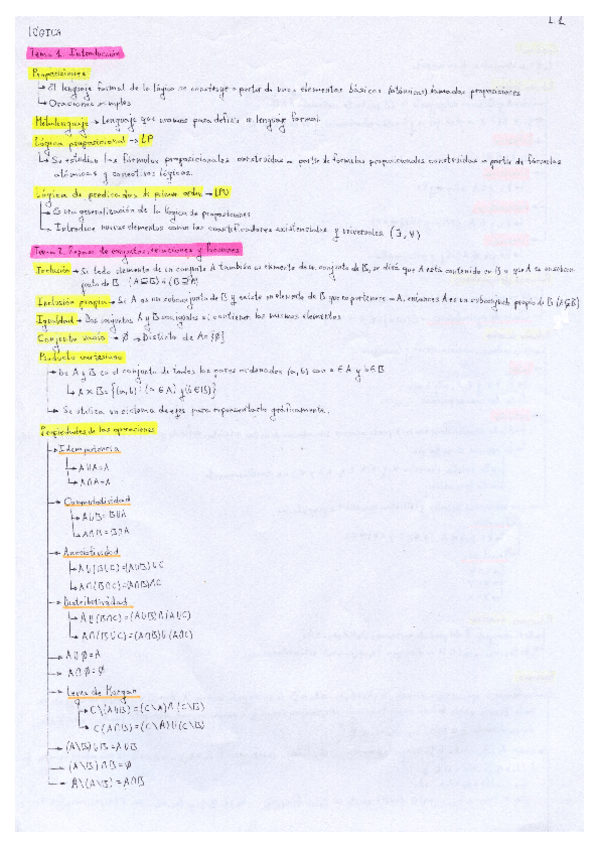 L1
LÓGICA
Tema 1. Introducción
Proposiciones
↳ El lenguaje formal de la lógica se construye a partir de unos elementos básicos (atómicos) llamados proposiciones
↳ Oraciones simples
Metalenguaje → Lenguaje que usamos para definir el lenguaje formal.
Lógica proposicional → LP
↳ Se estudian las fórmulas proposicionales construidas a partir de formulas proposicionales construidas a partir de fórmulas
atómicas y conectivas lógicas.
Lógica de predicados de primer orden → LPO
↳ Es una generalización de la lógica de proposiciones
↳ Introduce nuevos elementos como los cuantificadores existenciales y universales (∃, ∀)
Tema 2. Repaso de conjuntos, relaciones y funciones
Inclusión → Si todo elemento de un conjunto A también es elemento de un conjunto de B, se dice que A esta contenido en B o que A es un subcon-
junto de B (A⊆B) o (B⊇A)
Inclusión propia → Si A es un subconjunto de B y existe un elemento de B que no pertenece a A, entonces A es un subconjunto propio de B (A⊊B)
Igualdad → Dos conjuntos A y B son iguales si contienen los mismos elementos
Conjunto vacío → ∅ → Distinto de A={∅}
Producto cartesiano
↳ De A y B es el conjunto de todos los pares ordenados (a,b) con a∈A y b∈B
↳ A×B={(a,b):(a∈A) y (b∈B)}
↳ Se utiliza un sistema de ejes para representarlo gráficamente.
Propiedades de las operaciones
→ Idempotencia
↳ A∪A=A
↳ A∩A=A
→ Conmutatividad
↳ A∪B=B∪A
↳ A∩B=B∩A
→ Asociatividad
↳ A∪(B∪C)=(A∪B)∪C
↳ A∩(B∩C)=(A∩B)∩C
→ Distributividad
↳ A∪(B∩C)=(A∪B)∩(A∪C)
↳ A∩(B∪C)=(A∩B)∪(A∩C)
→ A∪∅=A
→ A∩∅=∅
→ Leyes de Morgan
↳ C\(A∪B)=(C\A)∩(C\B)
↳ C(A∩B)=(C\A)∪(C\B)
→ (A\B)∪B=A∪B
→ (A\B)∩B=∅
→ A\(A\B)=A∩B